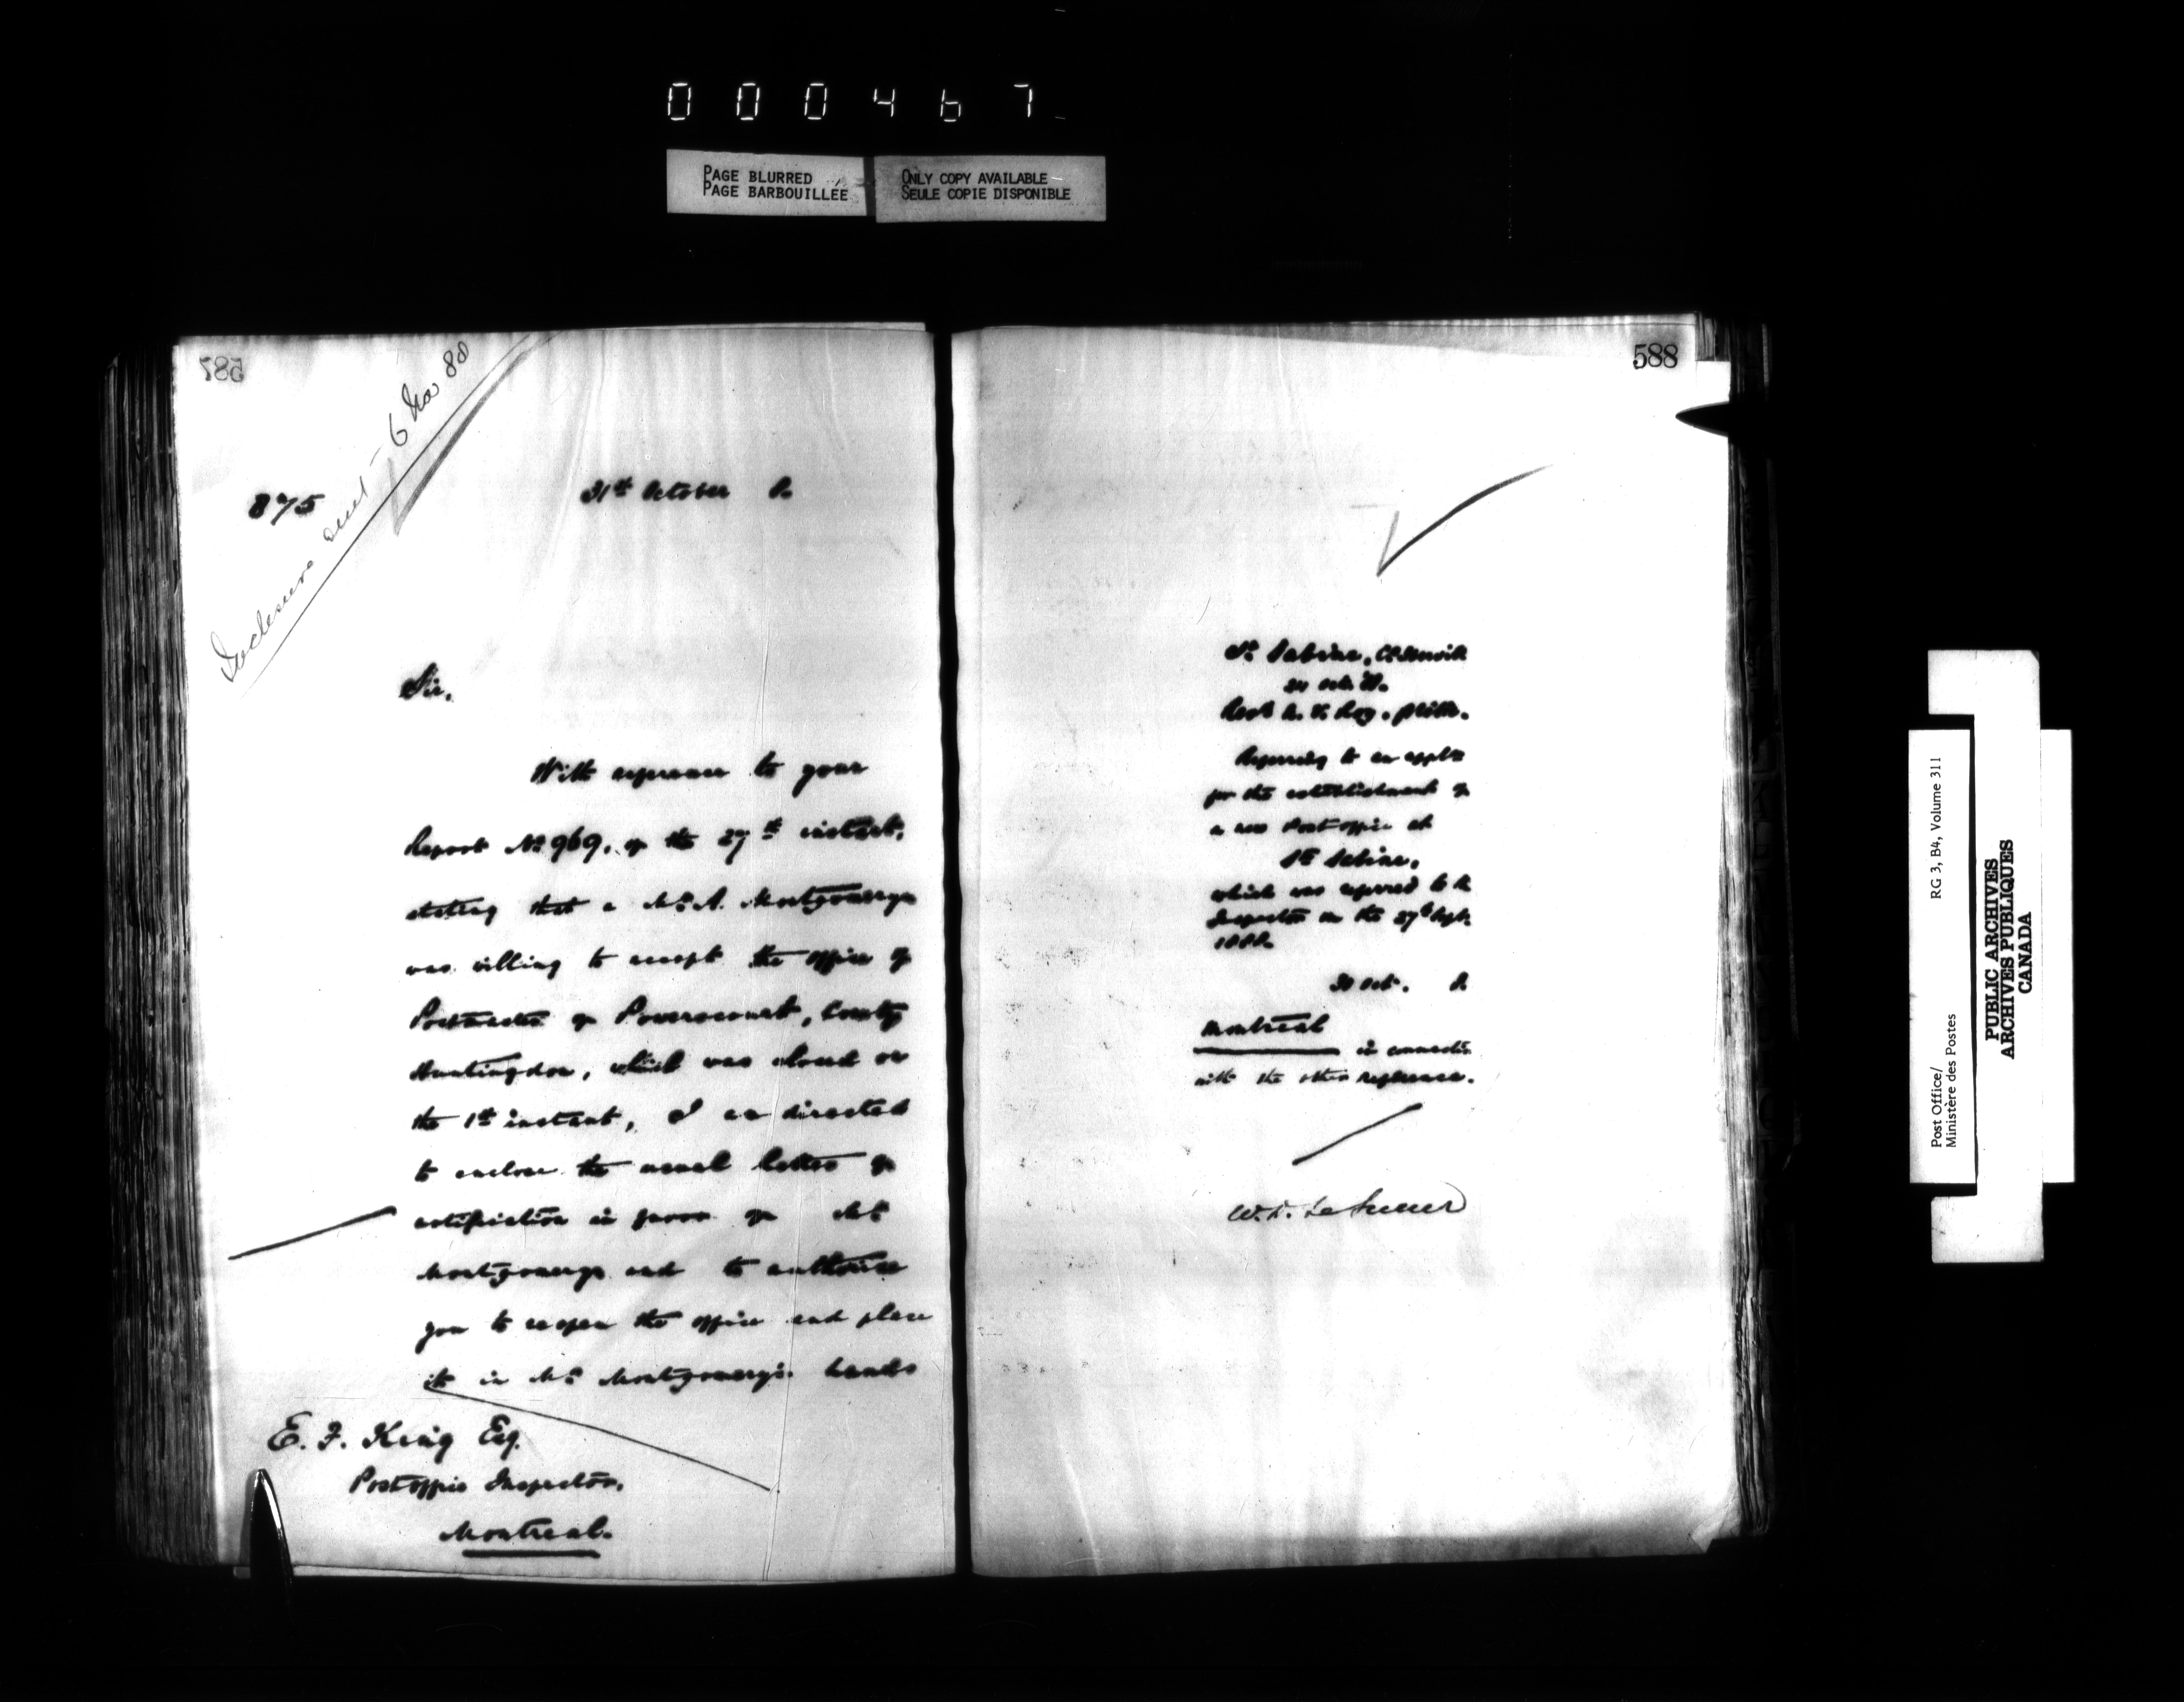 000467
PAGE BLURRED
PAGE BARBOUILLÉE
ONLY COPY AVAILABLE
SEULE COPIE DISPONIBLE
587
Inclosure sent 6 Nov 88
875
31st October 8.
Sir,
With reference to your
Report No 969, of the 27th instant,
stating that a Mr A. Montgomery
was willing to accept the office of
Postmaster of Powerscourt, County
Huntingdon, which was closed on
the 1st instant, I am directed
to enclose the usual letter of
notification in favor of Mr
Montgomery and to authorise
you to reopen the office and place
it in Mr Montgomery's hands
E. F. King Esq.
Post office Inspector,
Montreal.
588
St Sabine,
Oct. 88.
Referring to an appln
for the establishment of
a new Post office at
Ste Sabine,
which was referred to the
Inspector on the 27th Sept.
1888.
30 Oct. 8.
Montreal
in connection
with the other reference.
W. D. LeSueur
Post Office/
Ministère des Postes
RG 3, B4, Volume 311
PUBLIC ARCHIVES
ARCHIVES PUBLIQUES
CANADA